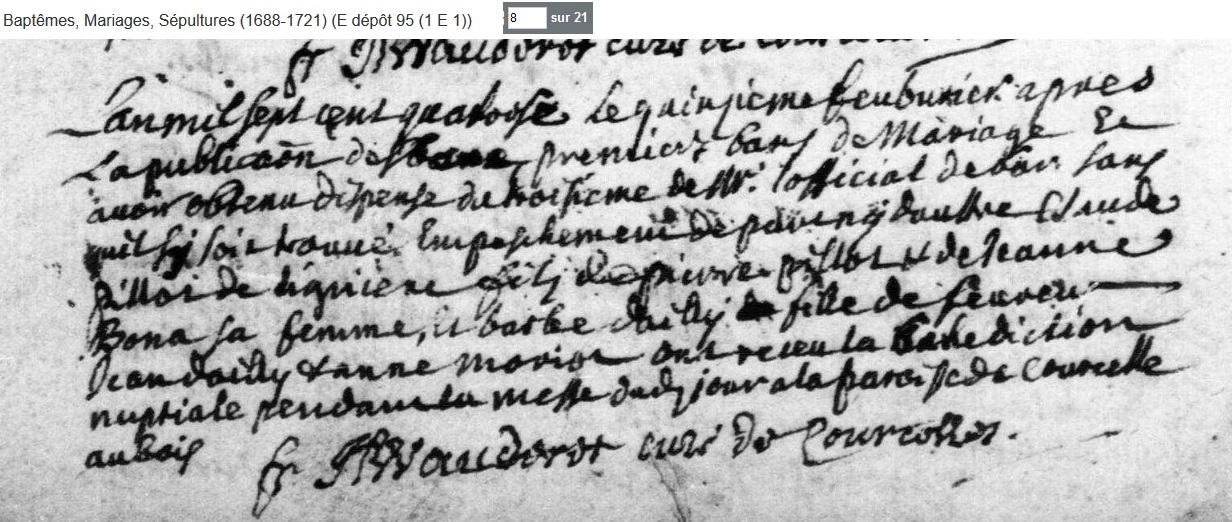 Baptêmes, Mariages, Sépultures (1688-1721) (E dépôt 95 (1 E 1)) 8 sur 21
fr Vauderot curé de
L'an mil sept cent quatorse le quinsieme feuburier apres
La publicaõn des premiers bans de Mariage Et
auoir obtenu dispense du troisieme de Mr. l'official de bar sans
quil sy soit trouué Empeschement de part ny dautre Claude
pillot de ligniere filz de pierre pillot et de Jeanne
Bona sa femme, et barbe dailly fille de feurent
Jean dailly & anne moriot ont receu la benediction
nuptiale pendant la messe dudj jour a la paroisse de Courcelle
au bois
fr Vauderot curé de Courcelles.